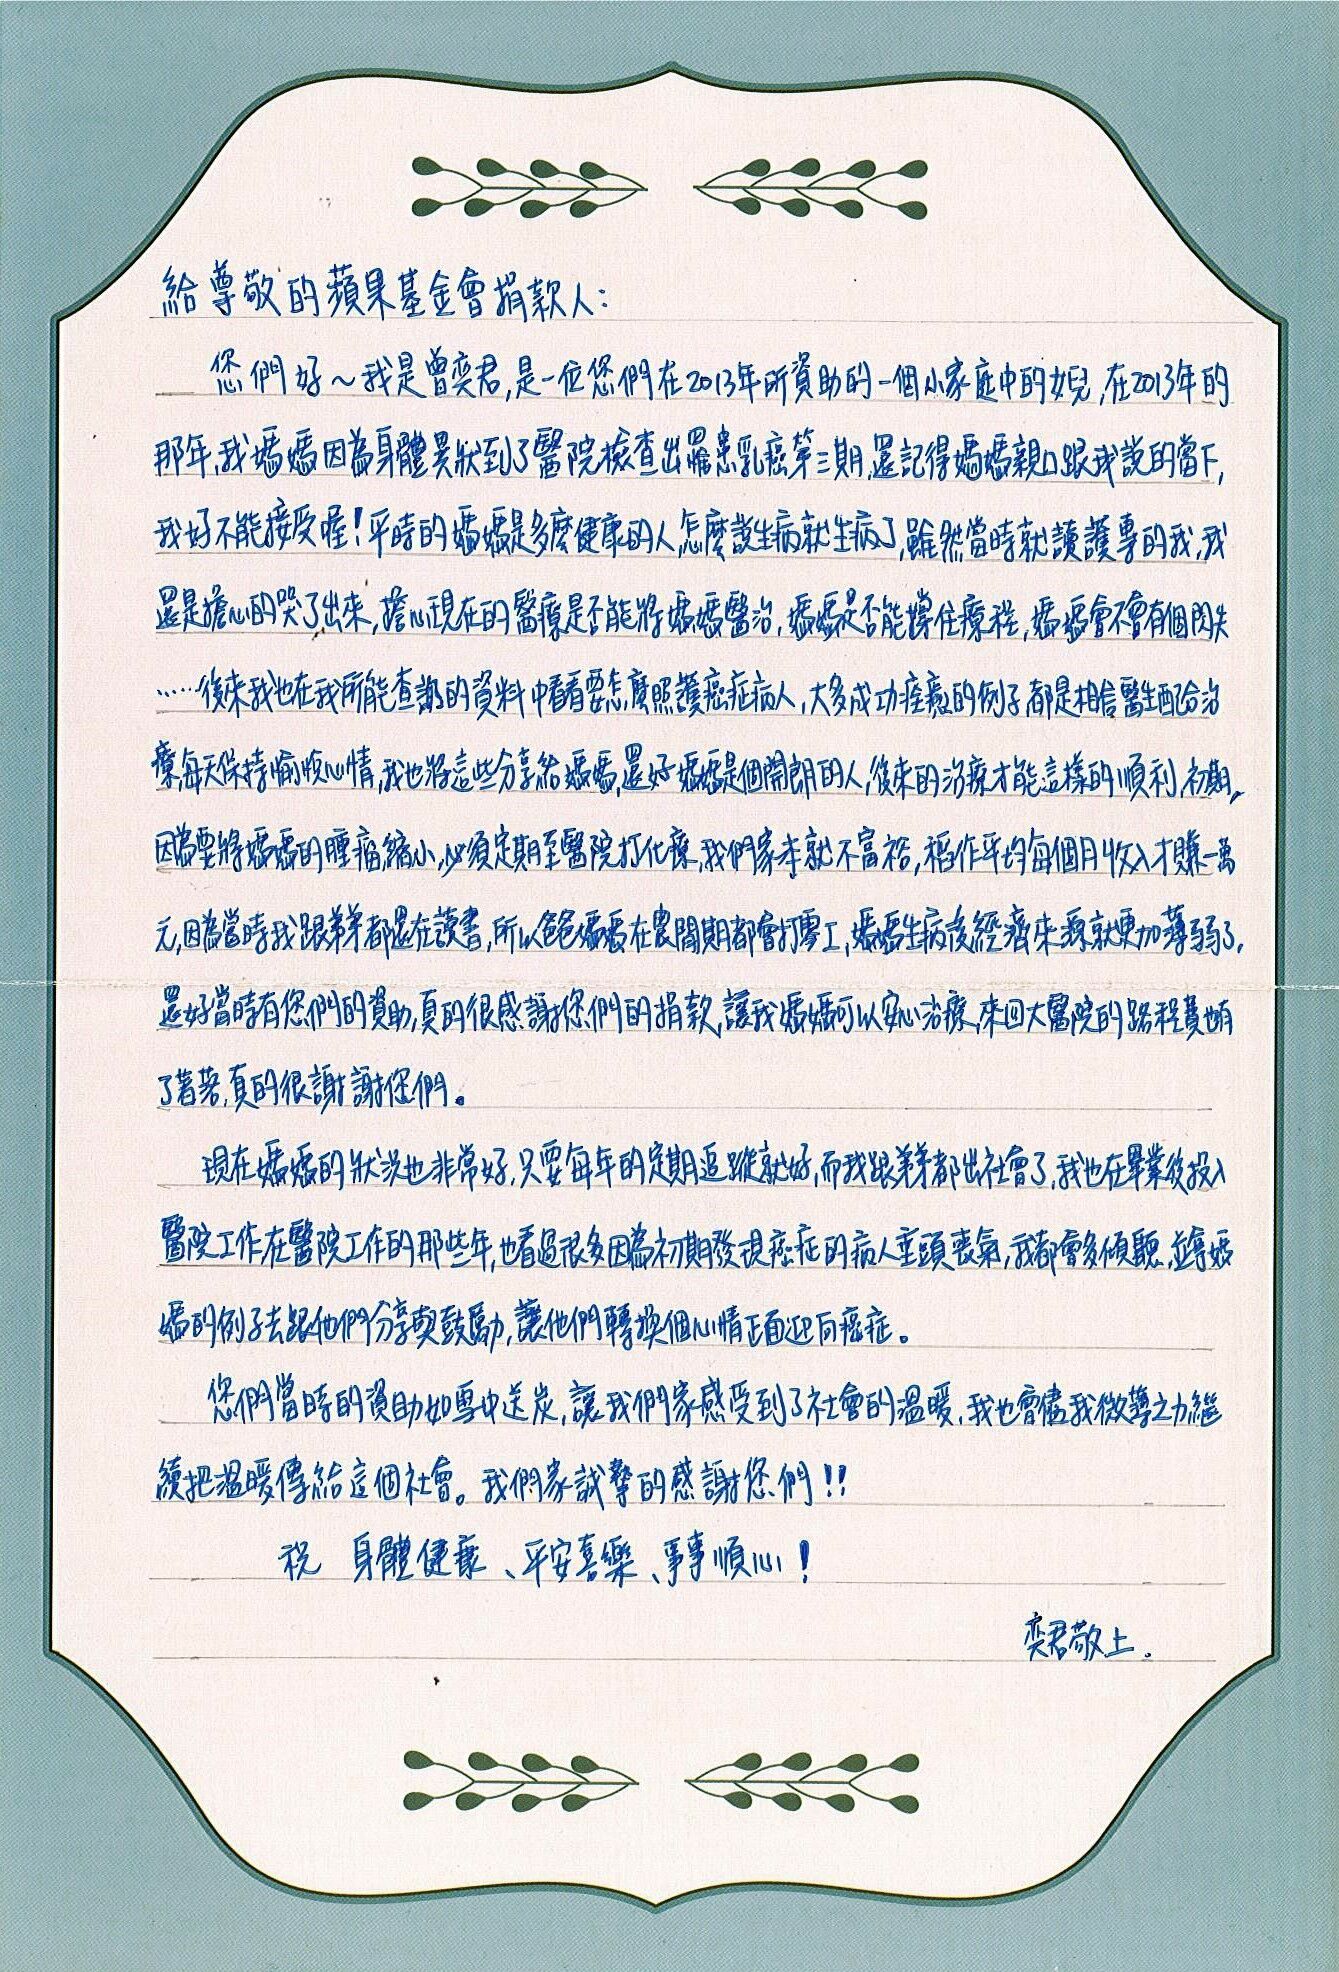 給尊敬的蘋果基金會捐款人：
您們好~我是曾奕君,是一位您們在2013年所資助的一個小家庭中的女兒,在2013年的
那年,我媽媽因為身體異狀到了醫院檢查出罹患乳癌第三期,還記得媽媽親口跟我說的當下,
我好不能接受喔!平時的媽媽是多麼健康的人怎麼說生病就生病了,雖然當時就讀護專的我,我
還是擔心的哭了出來,擔心現在的醫療是否能將媽媽醫治,媽媽是否能撐住療程,媽媽會不會有個閃失
……後來我也在我所能查詢的資料中看看要怎麼照護癌症病人,大多成功痊癒的例子都是相信醫生配合治
療,每天保持愉悅心情,我也將這些分享給媽媽,還好媽媽是個開朗的人,後來的治療才能這樣的順利,初期,
因為要將媽媽的腫瘤縮小,必須定期至醫院打化療,我們家本就不富裕,稻作平均每個月收入才賺一萬
元,因為當時我跟弟弟都還在讀書,所以爸爸媽媽在農閒期都會打零工,媽媽生病後經濟來源就更加薄弱了,
還好當時有您們的資助,真的很感謝您們的捐款,讓我媽媽可以安心治療,來回大醫院的路程費也有
了著落,真的很謝謝您們。
現在媽媽的狀況也非常好,只要每年的定期追蹤就好,而我跟弟弟都出社會了,我也在畢業後投入
醫院工作,在醫院工作的那些年,也看過很多因為初期發現癌症的病人垂頭喪氣,我都會多傾聽,並拿媽
媽的例子去跟他們分享與鼓勵,讓他們轉換個心情正面迎向癌症。
您們當時的資助如雪中送炭,讓我們家感受到了社會的溫暖,我也會儘我微薄之力繼
續把溫暖傳給這個社會。我們家誠摯的感謝您們!!
祝 身體健康、平安喜樂、事事順心!
奕君敬上.